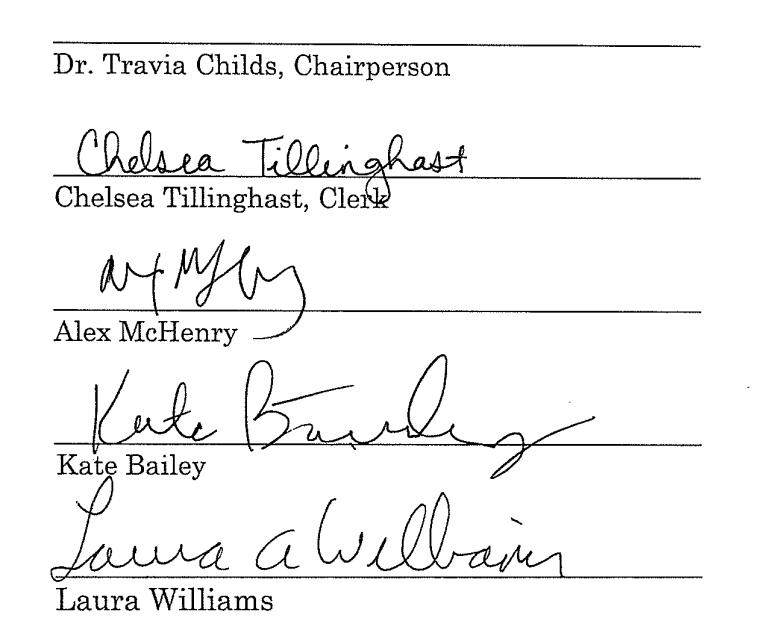 Dr. Travia Childs, Chairperson
Chelsea Tillinghast
Chelsea Tillinghast, Clerk
Alex McHenry
Kate Bailey
Kate Bailey
Laura A Williams
Laura Williams